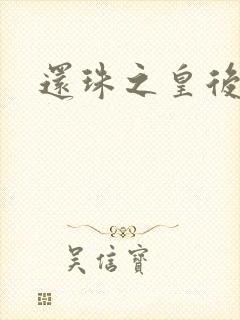 還珠之皇後
吳信寶